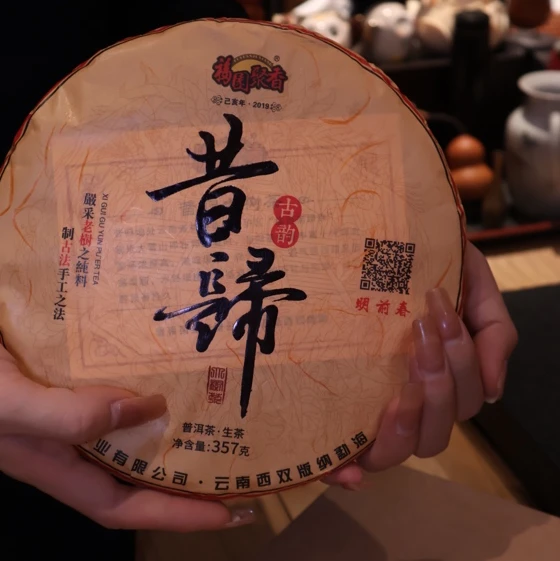 福園聚香
己亥年·2019
昔歸
古韵
XI GUI GU YUN PU'ER TEA
嚴采老樹之純料
制古法手工之法
明前春
普洱茶·生茶
净含量:357克
业有限公司·云南西双版纳勐海